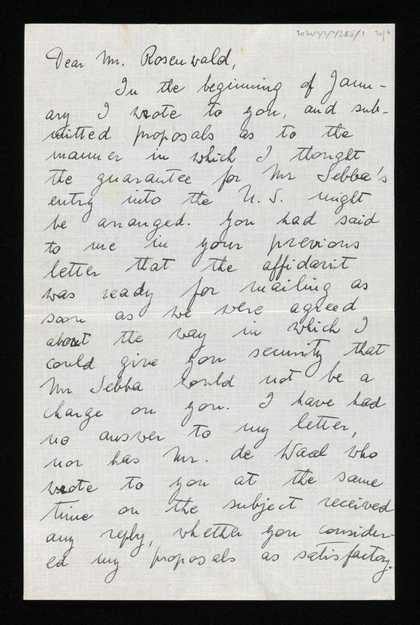 Dear Mr. Rosenwald,
In the beginning of Janu-
ary I wrote to you, and sub-
mitted proposals as to the
manner in which I thought
the guarantee for Mr Sebba's
entry into the U.S. might
be arranged. You had said
to me in your previous
letter that the affidavit
was ready for mailing as
soon as we were agreed
about the way in which I
could give you security that
Mr Sebba would not be a
charge on you. I have had
no answer to my letter,
nor has Mr. de Waal who
wrote to you at the same
time on the subject received
any reply, whether you consider-
ed my proposals as satisfactory.